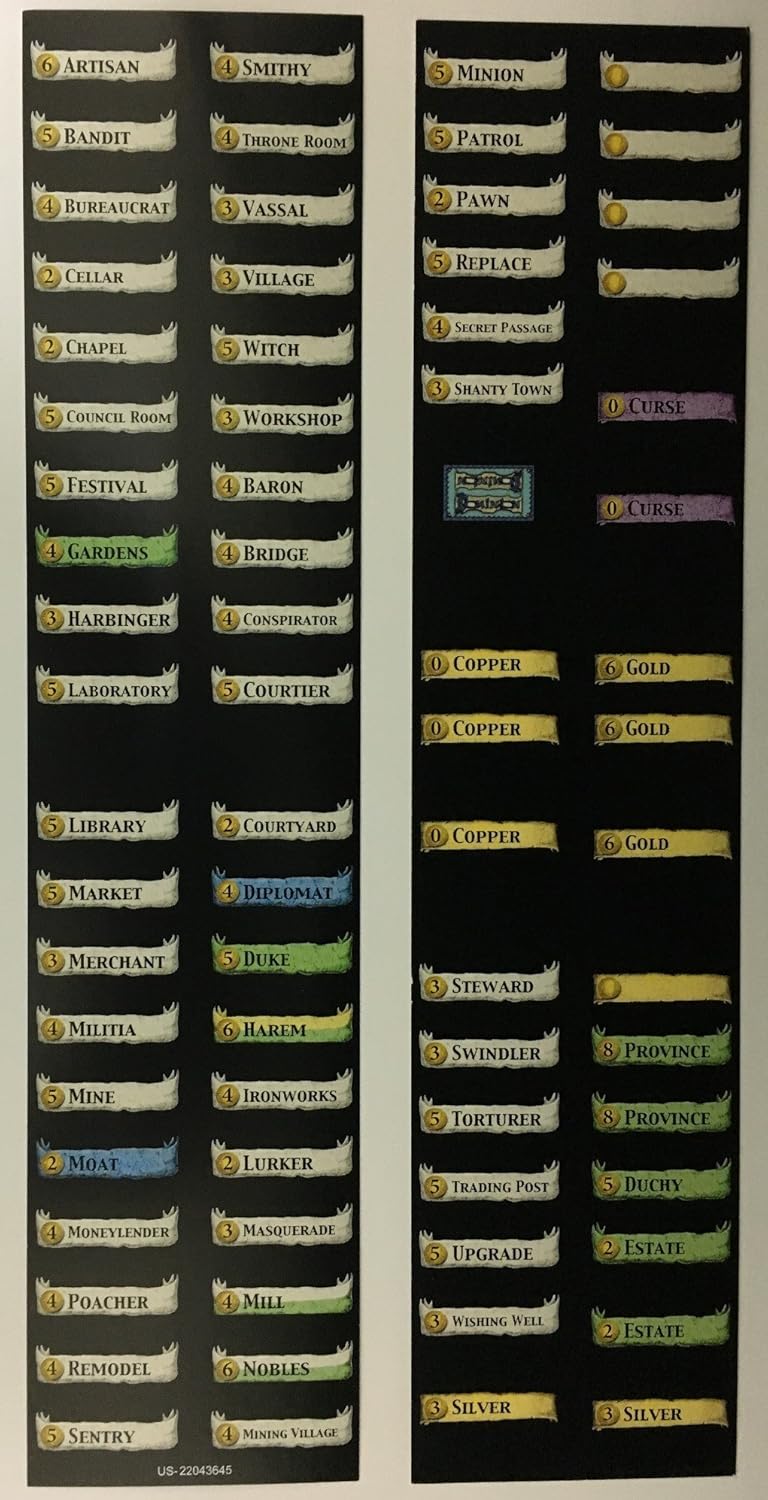 6 ARTISAN
5 BANDIT
4 BUREAUCRAT
2 CELLAR
2 CHAPEL
5 COUNCIL ROOM
5 FESTIVAL
4 GARDENS
3 HARBINGER
5 LABORATORY
5 LIBRARY
5 MARKET
3 MERCHANT
4 MILITIA
5 MINE
2 MOAT
4 MONEYLENDER
4 POACHER
4 REMODEL
5 SENTRY
4 SMITHY
4 THRONE ROOM
3 VASSAL
3 VILLAGE
5 WITCH
3 WORKSHOP
4 BARON
4 BRIDGE
4 CONSPIRATOR
5 COURTIER
2 COURTYARD
4 DIPLOMAT
5 DUKE
6 HAREM
4 IRONWORKS
2 LURKER
3 MASQUERADE
4 MILL
6 NOBLES
4 MINING VILLAGE
US-22043645
5 MINION
5 PATROL
2 PAWN
5 REPLACE
4 SECRET PASSAGE
3 SHANTY TOWN
Dominion
Dominion
0 COPPER
0 COPPER
0 COPPER
3 STEWARD
3 SWINDLER
5 TORTURER
5 TRADING POST
5 UPGRADE
3 WISHING WELL
3 SILVER
0 CURSE
0 CURSE
6 GOLD
6 GOLD
6 GOLD
8 PROVINCE
8 PROVINCE
5 DUCHY
2 ESTATE
2 ESTATE
3 SILVER